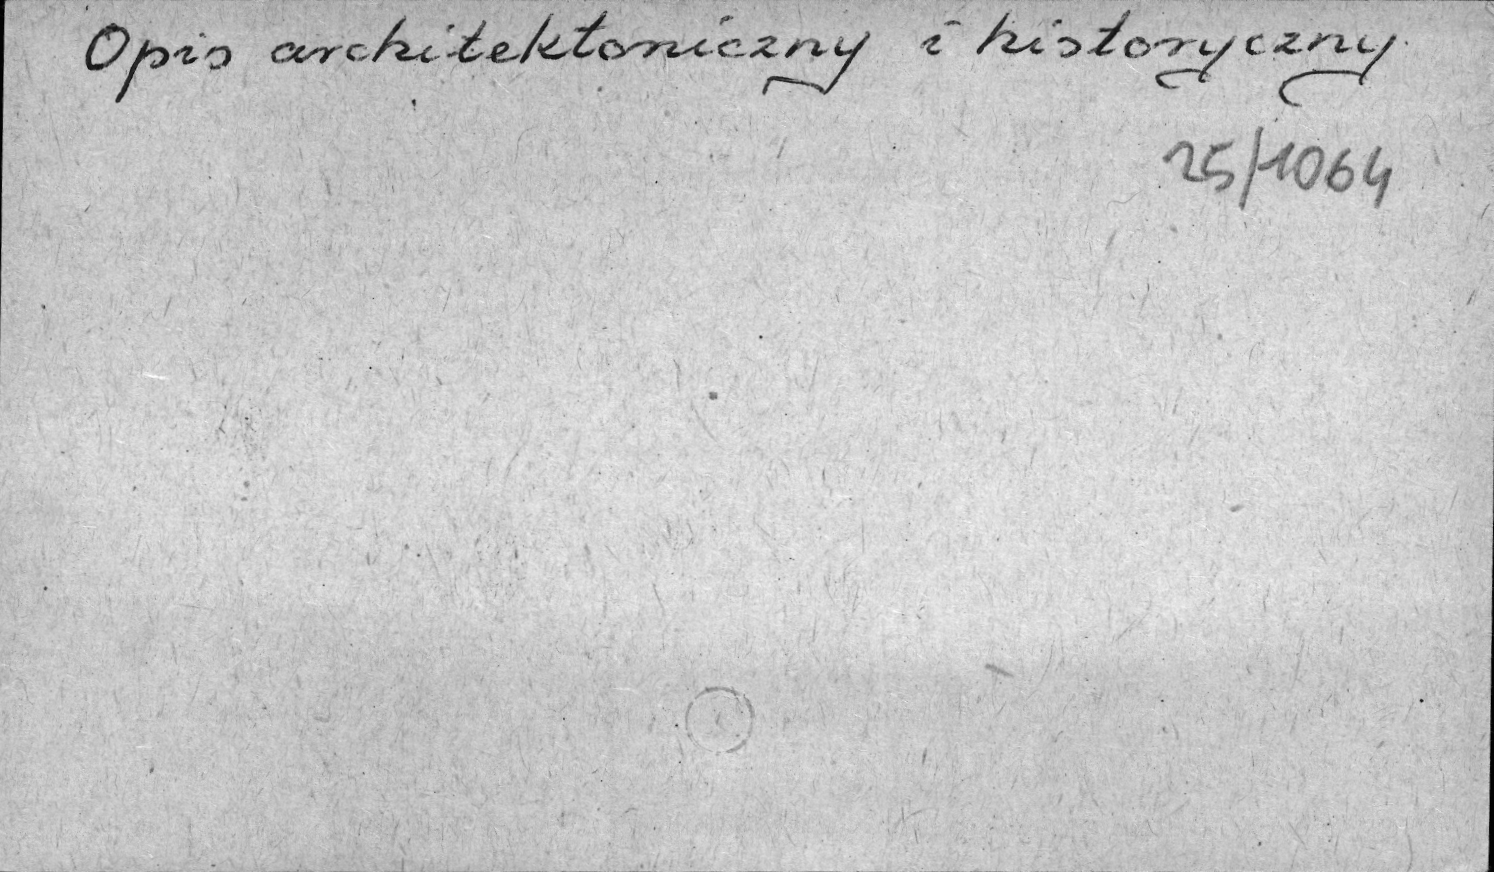 Opis architektoniczny i historyczny
25/1064